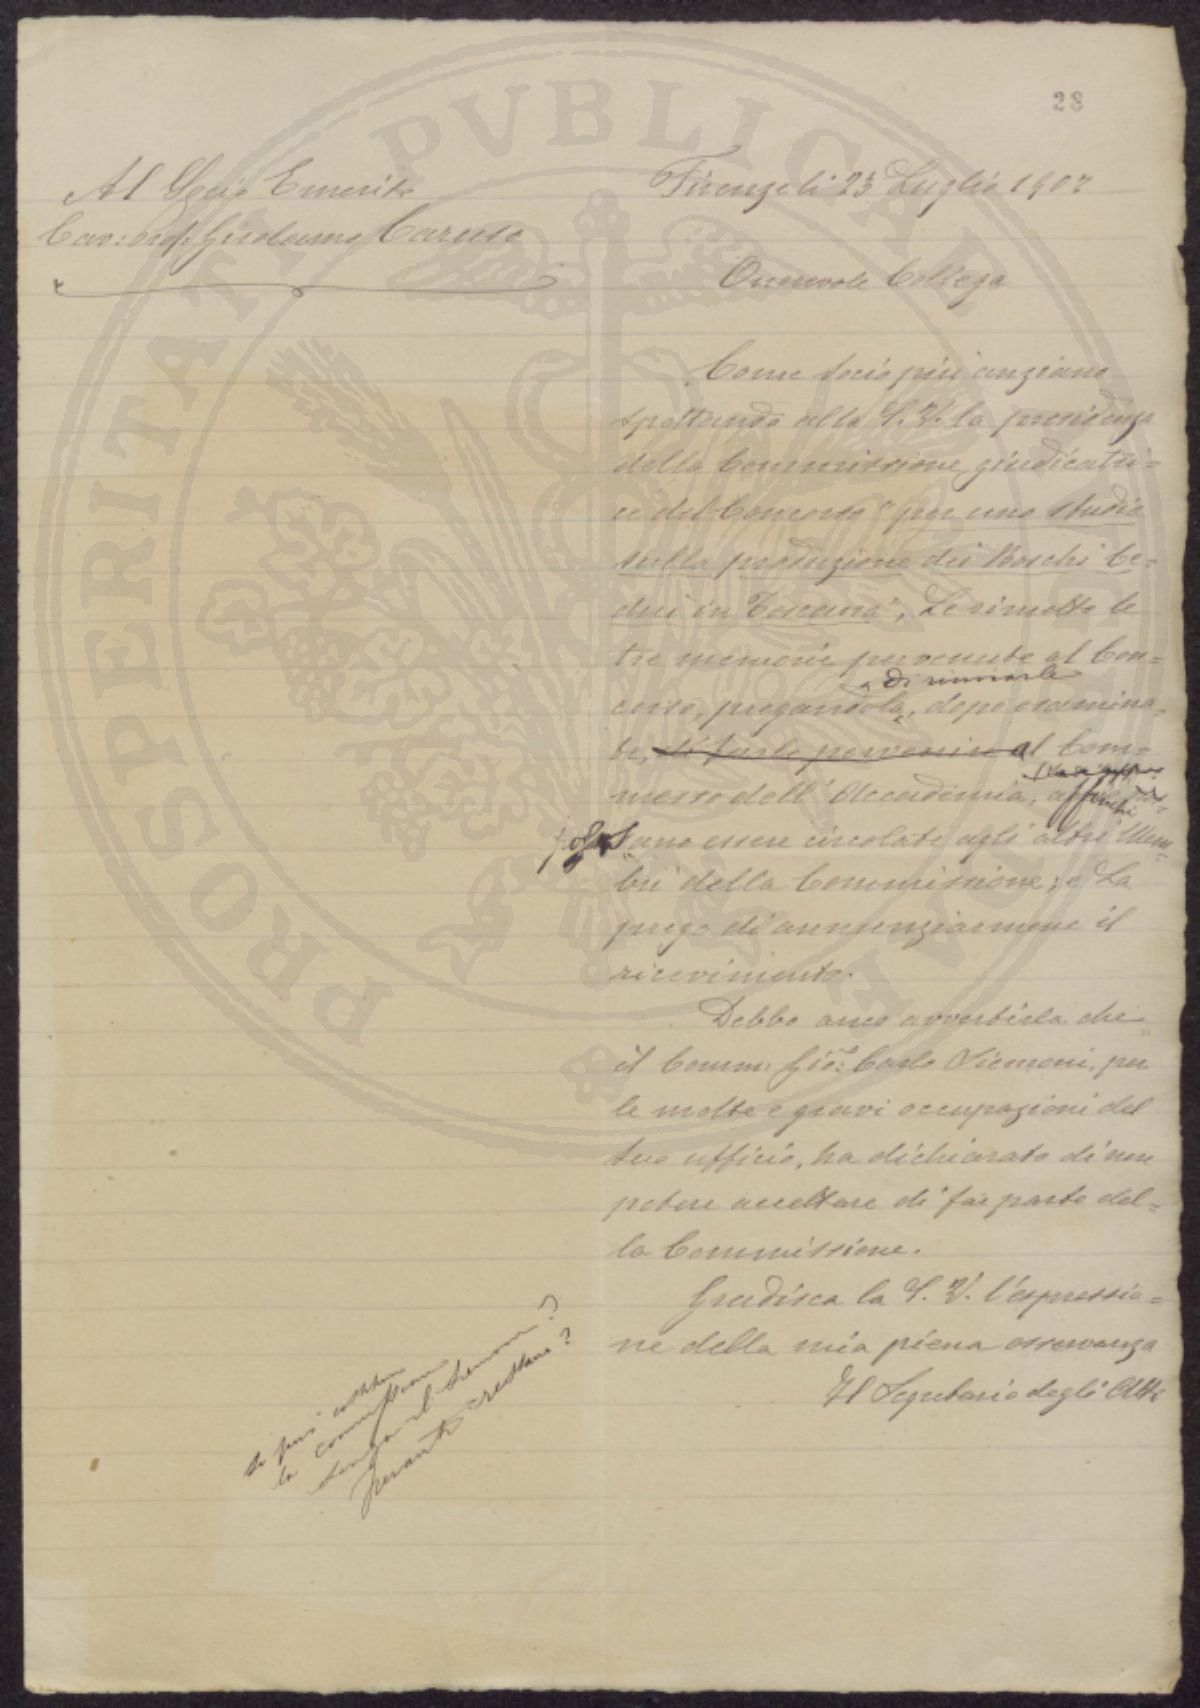 28
Al Socio Emerito
Cav: Prof: Girolamo Caruso
Firenze li 23 Luglio 1907
Onorevole Collega
Come socio più anziano
spettando alla S. V. la presidenza
della Commissione giudicatri=
ce del Concorso "per uno studio
sulla produzione dei Boschi Ce=
dui in Toscana", Le rimetto le
tre memorie pervenute al Con=
di rinviarle
corso, pregandola, dopo esamina=
te, di farle pervenire al Com=
messo dell' Accademia, affinchè pos=
sano essere circolate agli altri Mem=
bri della Commissione; e La
prego di annunziarmene il
ricevimento.
Debbo anco avvertirla che
il Comm: Gio: Carlo Siemoni, per
le molte e gravi occupazioni del
suo ufficio, ha dichiarato di non
potere accettare di far parte del=
la Commissione.
Gradisca la S. V. l'espressio=
ne della mia piena osservanza
Il Segretario degli Atti
si può costituire
la commissione
senza il Siemoni?
quanti restano?